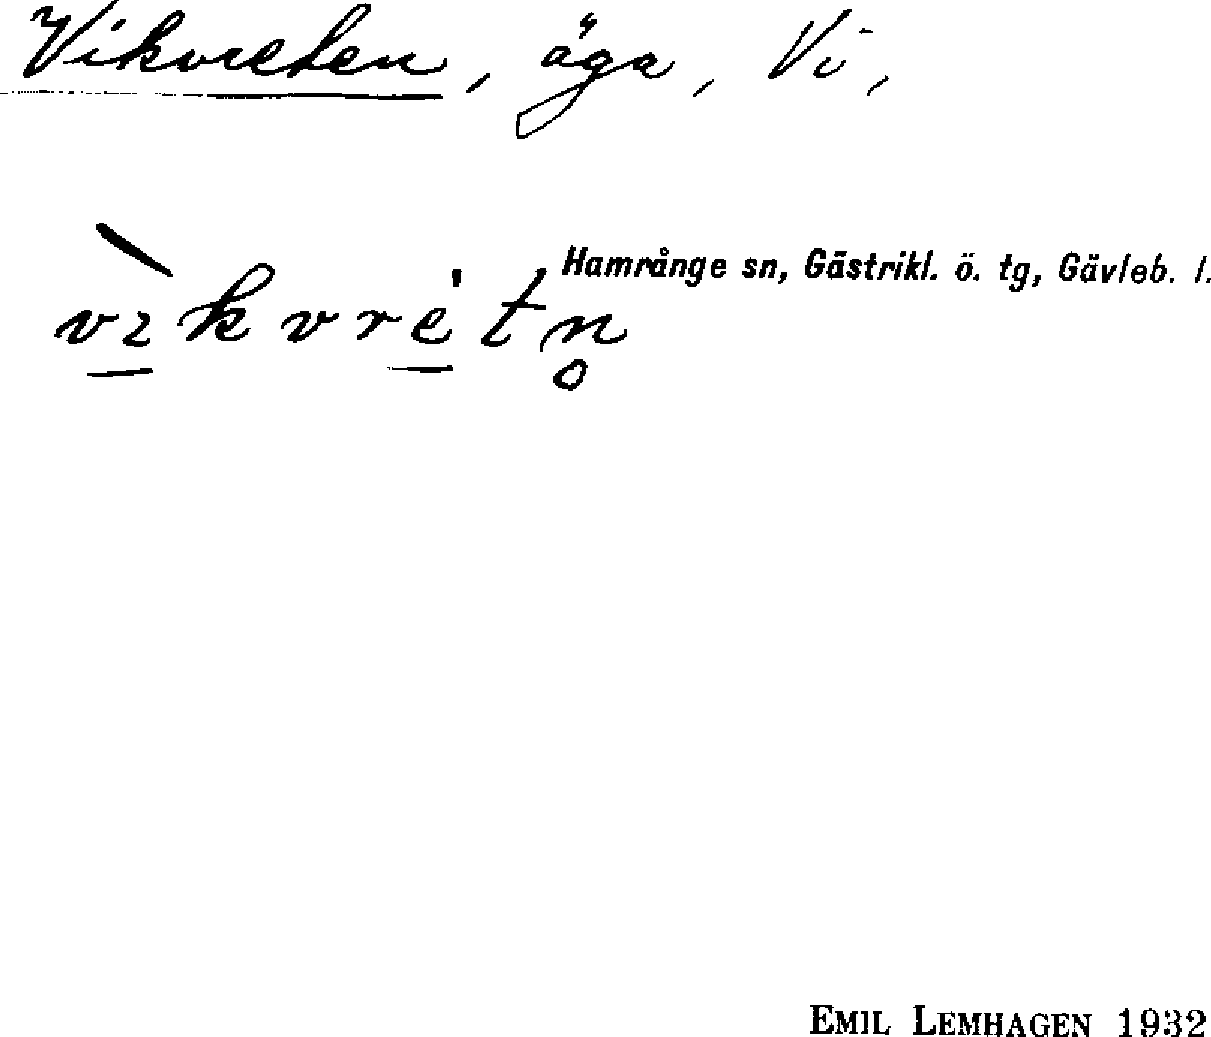 Vikvreten, äga, Vi,
Hamrånge sn, Gästrikl. ö. tg, Gävleb. l.
vìkvrétn̥
EMIL LEMHAGEN 1932